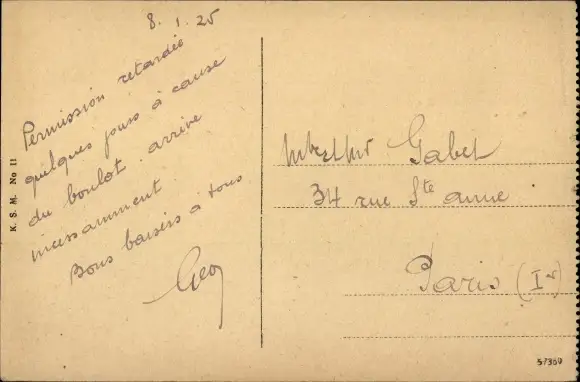 8.1.25
Permission retardée
quelques jours à cause
du boulot. arrive
incessamment
Bons baisers a tous
Geo
K.S.M. No 11
Gabet
34 rue Ste anne
Paris (Ier)
57360